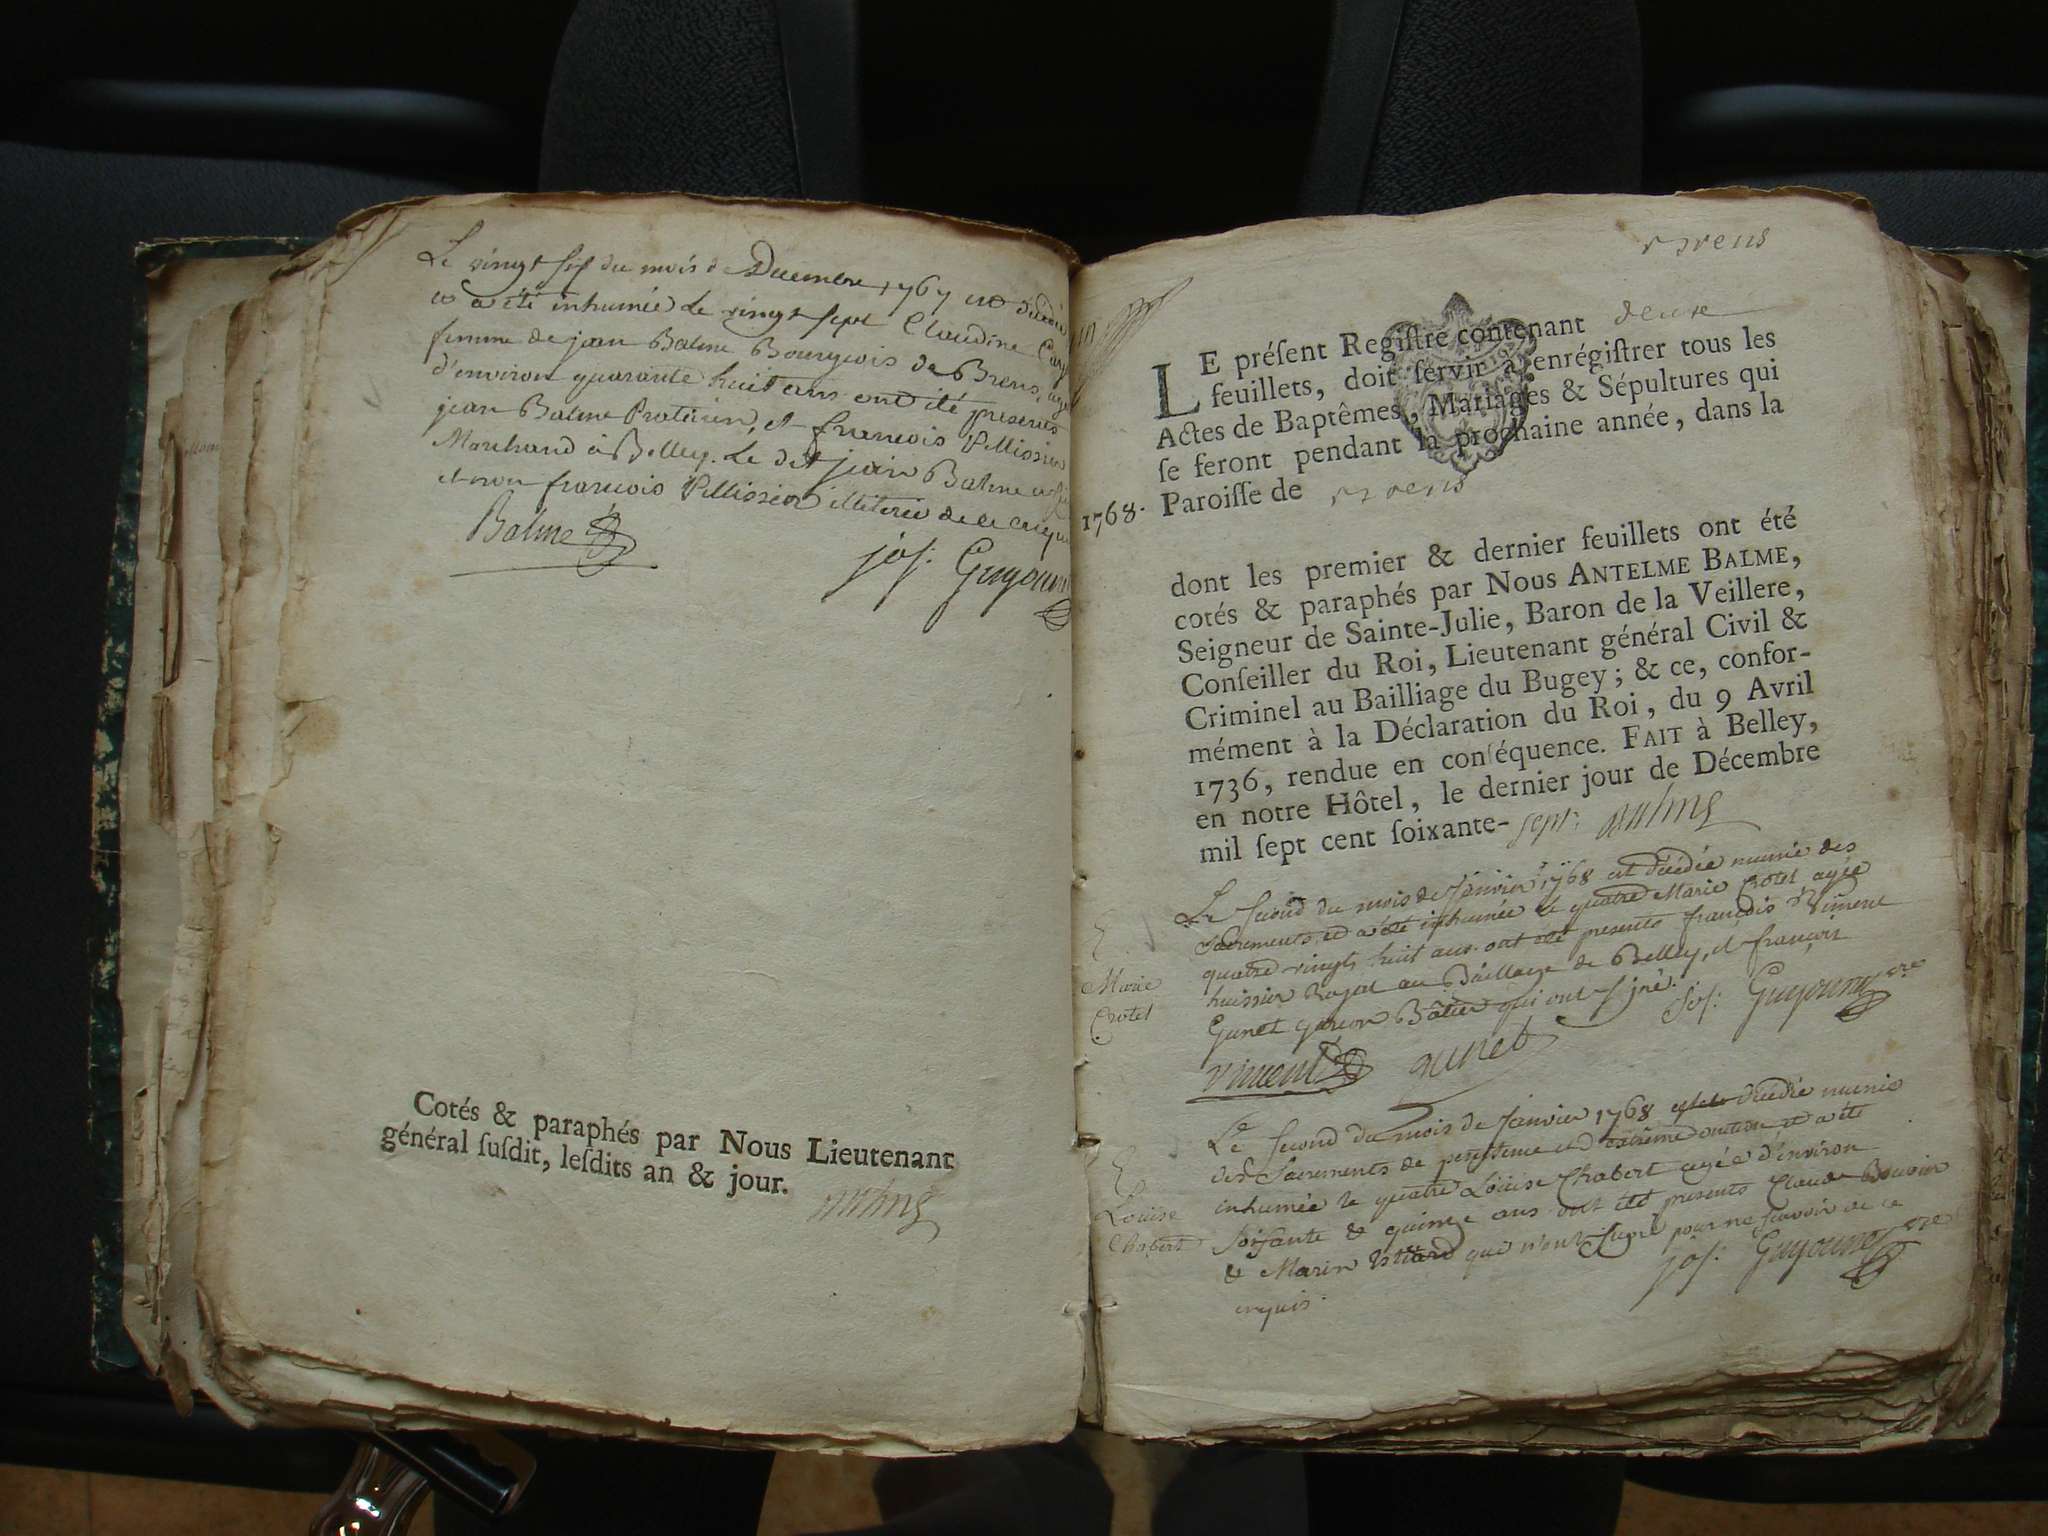 Le vingt six du mois de Decembre 1767 est décédée
et a été inhumée le vingt sept Claudine
femme de jean Balme Bourgeois de Brens, agée
d'environ quarante huit ans ont été presents
jean Balme Praticien, et françois Pellissier
Marchand à Belley. Le dit jean Balme a signé
et non françois Pellissier illiteré de ce enquis
Balme jos: Guyonne
Cotés & paraphés par Nous Lieutenant
général ſuſdit, leſdits an & jour.
Balme
Brens
LE préſent Regiſtre contenant deuxe
feuillets, doit ſervir à enrégiſtrer tous les
Actes de Baptêmes, Mariages & Sépultures qui
ſe feront pendant la prochaine année, dans la
1768. Paroiſſe de Brens
dont les premier & dernier feuillets ont été
cotés & paraphés par Nous ANTELME BALME,
Seigneur de Sainte-Julie, Baron de la Veillere,
Conſeiller du Roi, Lieutenant général Civil &
Criminel au Bailliage du Bugey; & ce, confor-
mément à la Déclaration du Roi, du 9 Avril
1736, rendue en conſéquence. FAIT à Belley,
en notre Hôtel, le dernier jour de Décembre
mil ſept cent ſoixante-sept: Balme
Le second du mois de Janvier 1768 est décédée munie des
sacrements, et a été inhumée le quatre Marie Crotet agée
quatre vingts huit ans. ont été presents françois Viment
huissier Royal au Baillage de Belley, et françois
Gunet garçon Bâtier qui ont signé. Jos: Guyonne
Marie
Crotet
Viment Gunet
Le second du mois de Janvier 1768 est décédée munie
des Sacrements de penitence et extrême onction et a été
inhumée le quatre Louise Chabert agée d'environ
soixante & quinze ans ont été presents Claude Bouvier
& Marin qui n'ont signé pour ne sçavoir de ce
enquis. jos: Guyonne
Louise
Chabert